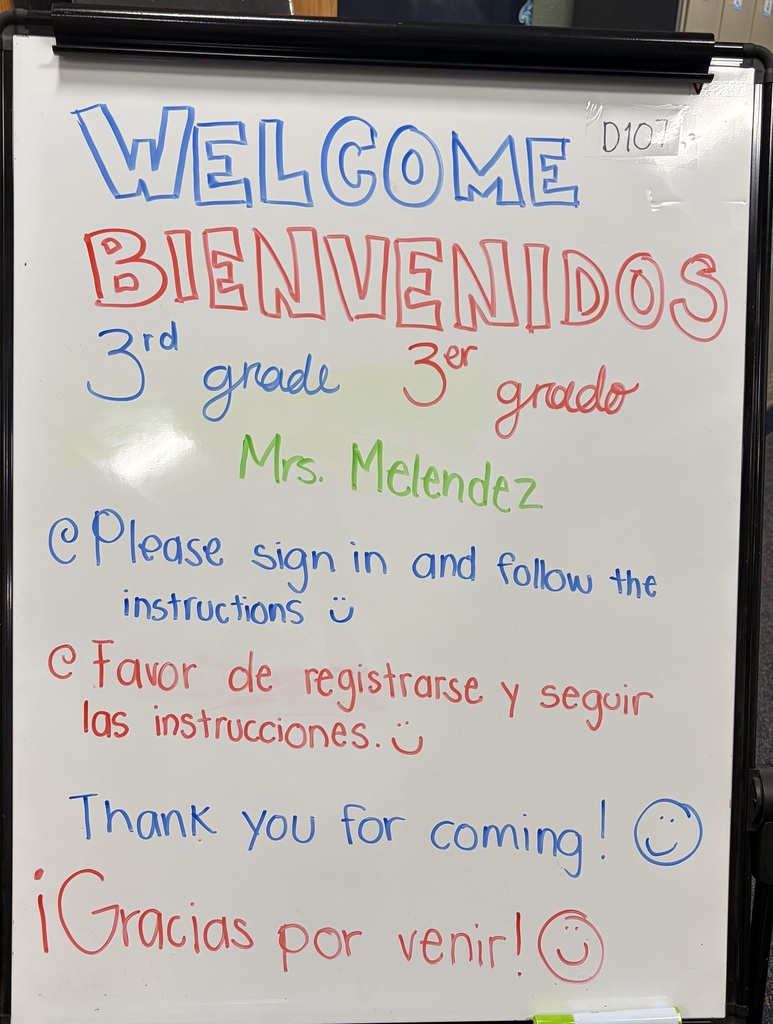 WELCOME
D107
BIENVENIDOS
3rd grade 3er grado
Mrs. Melendez
Please sign in and follow the
instructions
Favor de registrarse y seguir
las instrucciones.
Thank you for coming!
¡Gracias por venir!